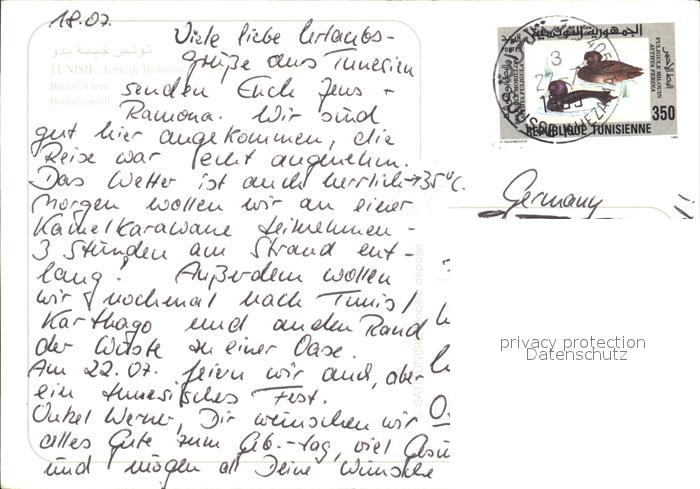 18.07.
Viele liebe Urlaubs-
grüße aus Tunesien
senden Euch Jens +
Ramona. Wir sind
gut hier angekommen, die
Reise war echt angenehm.
Das Wetter ist auch herrlich → 35°C.
Morgen wollen wir an einer
Kamelkarawane teilnehmen -
3 Stunden am Strand ent-
lang! Außerdem wollen
wir nochmal nach Tunis/
Karthago und an den Rand
der Wüste zu einer Oase.
Am 22.07. feiern wir auch, aber
ein tunesisches Fest.
Onkel Werner, Dir wünschen wir
alles Gute zum Geb.-tag, viel
und mögen all Deine Wünsche
تونس خيمة بدو
TUNISIE, Tente de Bédouins
Bedouin tent
Beduinenzelt
الجمهورية التونسية
FULIGULE MILOUIN
AYTHYA FERINA
350
REPUBLIQUE TUNISIENNE
Germany
privacy protection
Datenschutz